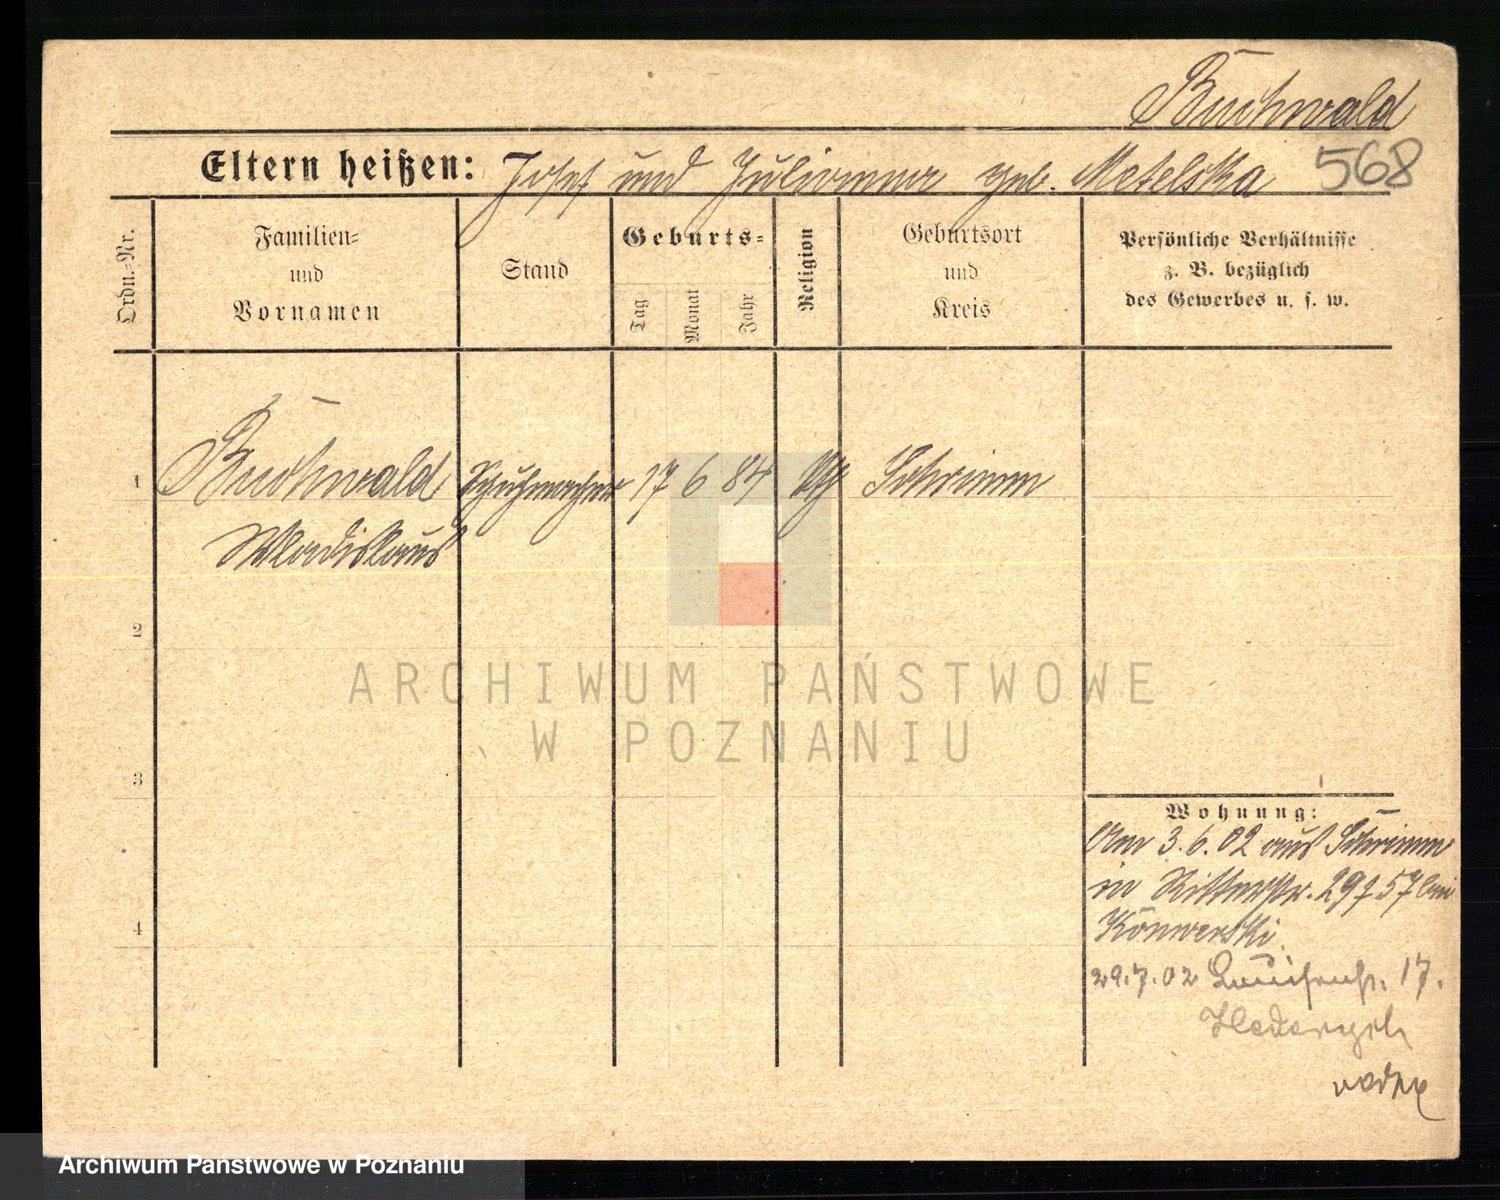 Buchwald
568
Eltern heißen: Josef und Julianna geb. Metelska
Ordn.-Nr.
Familien- und Vornamen
Stand
Geburts-
Tag
Monat
Jahr
Religion
Geburtsort und Kreis
Persönliche Verhältnisse
z. B. bezüglich
des Gewerbes u. s. w.
1
Buchwald Schuhmacher 17 6 84 kth Schrimm
Wladislaus
2
3
4
ARCHIWUM PAŃSTWOWE
W POZNANIU
Wohnung:
Am 3.6.02 aus Schrimm
in Ritterstr. 29 57 bei
29.7.02 Louisenstr. 17.
Archiwum Państwowe w Poznaniu